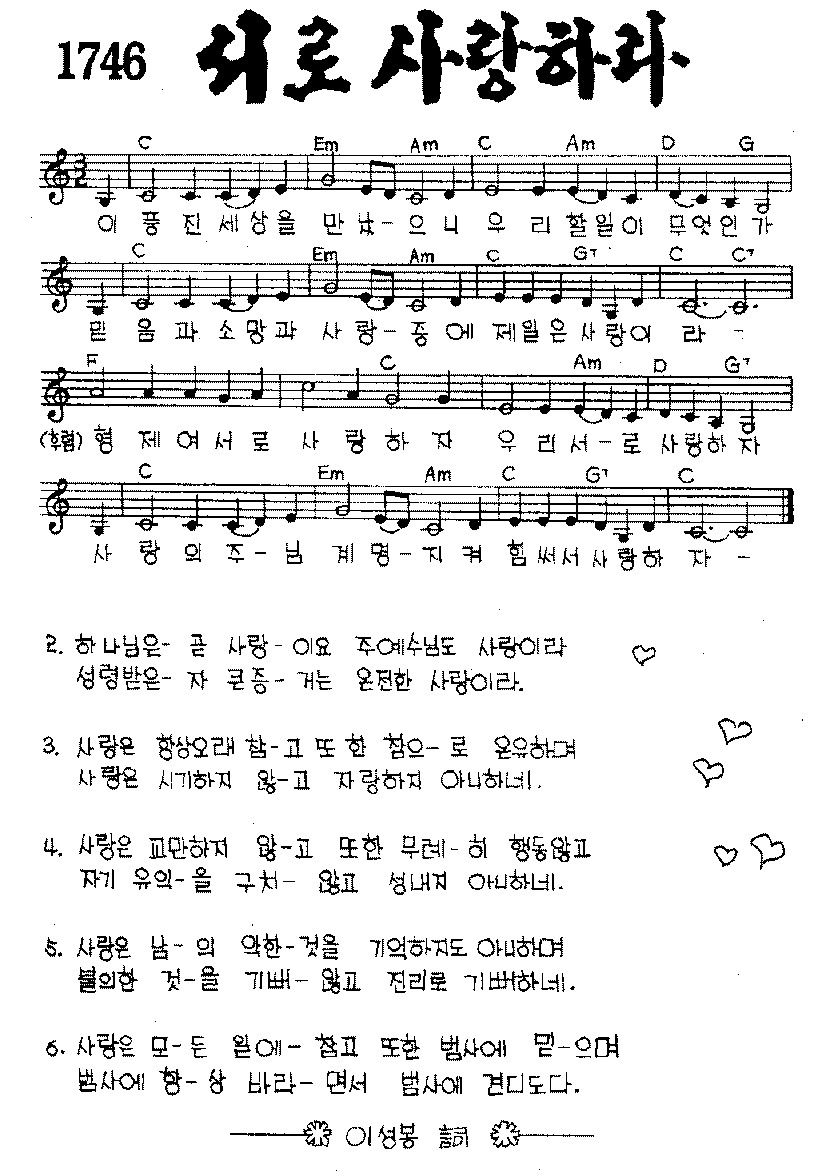 1746 서로 사랑하라
C Em Am C Am D G
이 풍 진 세 상 을 만 났 - 으 니 우 리 할 일 이 무 엇 인 가
C Em Am C G7 C C7
믿 음 과 소 망 과 사 랑 - 중 에 제 일 은 사 랑 이 라 -
F C Am D G7
(후렴) 형 제 여 서 로 사 랑 하 자 우 리 서 - 로 사 랑 하 자
C Em Am C G7 C
사 랑 의 주 - 님 계 명 - 지 켜 힘 써 서 사 랑 하 자 -
2. 하나님은- 곧 사랑-이요 주예수님도 사랑이라
성령받은- 자 큰증-거는 온전한 사랑이라.
3. 사랑은 항상오래 참-고 또 한 참으-로 온유하며
사랑은 시기하지 않-고 자랑하지 아니하네.
4. 사랑은 교만하지 않-고 또한 무례-히 행동않고
자기 유익-을 구치- 않고 성내지 아니하네.
5. 사랑은 남-의 악한-것을 기억하지도 아니하며
불의한 것-을 기뻐- 않고 진리로 기뻐하네.
6. 사랑은 모-든 일에- 참고 또한 범사에 믿-으며
범사에 항-상 바라-면서 범사에 견디도다.
이성봉 詞